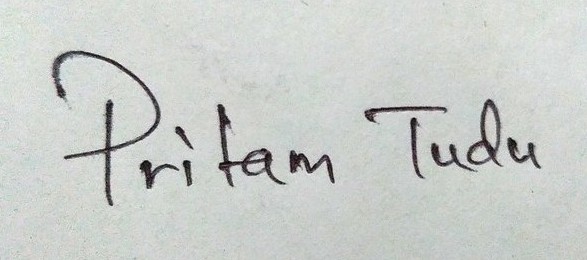 Pritam Tudu